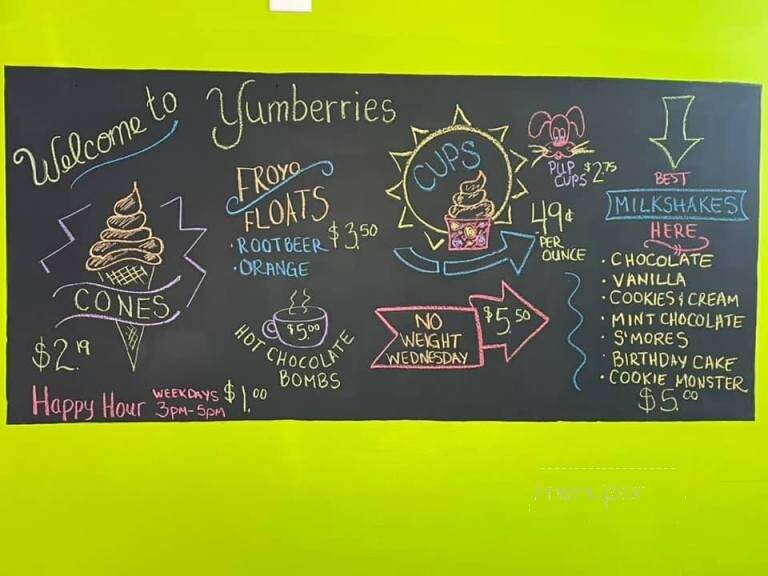 Welcome to Yumberries
CONES
$2.19
Happy Hour WEEKDAYS 3PM-5PM $1.00
FROYO
FLOATS
· ROOTBEER $3.50
· ORANGE
$5.00
HOT CHOCOLATE
BOMBS
CUPS
.49¢
PER
OUNCE
PUP
CUPS $2.75
NO
WEIGHT
WEDNESDAY
$5.50
BEST
MILKSHAKES
HERE
· CHOCOLATE
· VANILLA
· COOKIES & CREAM
· MINT CHOCOLATE
· S'MORES
· BIRTHDAY CAKE
· COOKIE MONSTER
$5.00